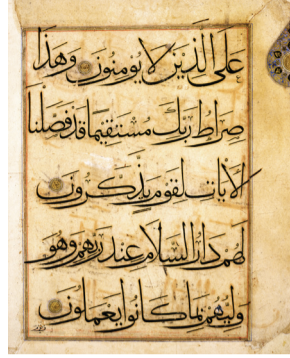 عَلَى الَّذِينَ لَا يُؤْمِنُونَ وَهَذَا
صِرَاطُ رَبِّكَ مُسْتَقِيمًا قَدْ فَصَّلْنَا
الْآيَاتِ لِقَوْمٍ يَذَّكَّرُونَ
لَهُمْ دَارُ السَّلَامِ عِنْدَ رَبِّهِمْ وَهُوَ
وَلِيُّهُمْ بِمَا كَانُوا يَعْمَلُونَ